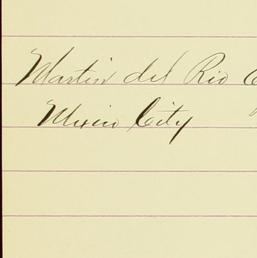 Martin del Rio
Mexico City